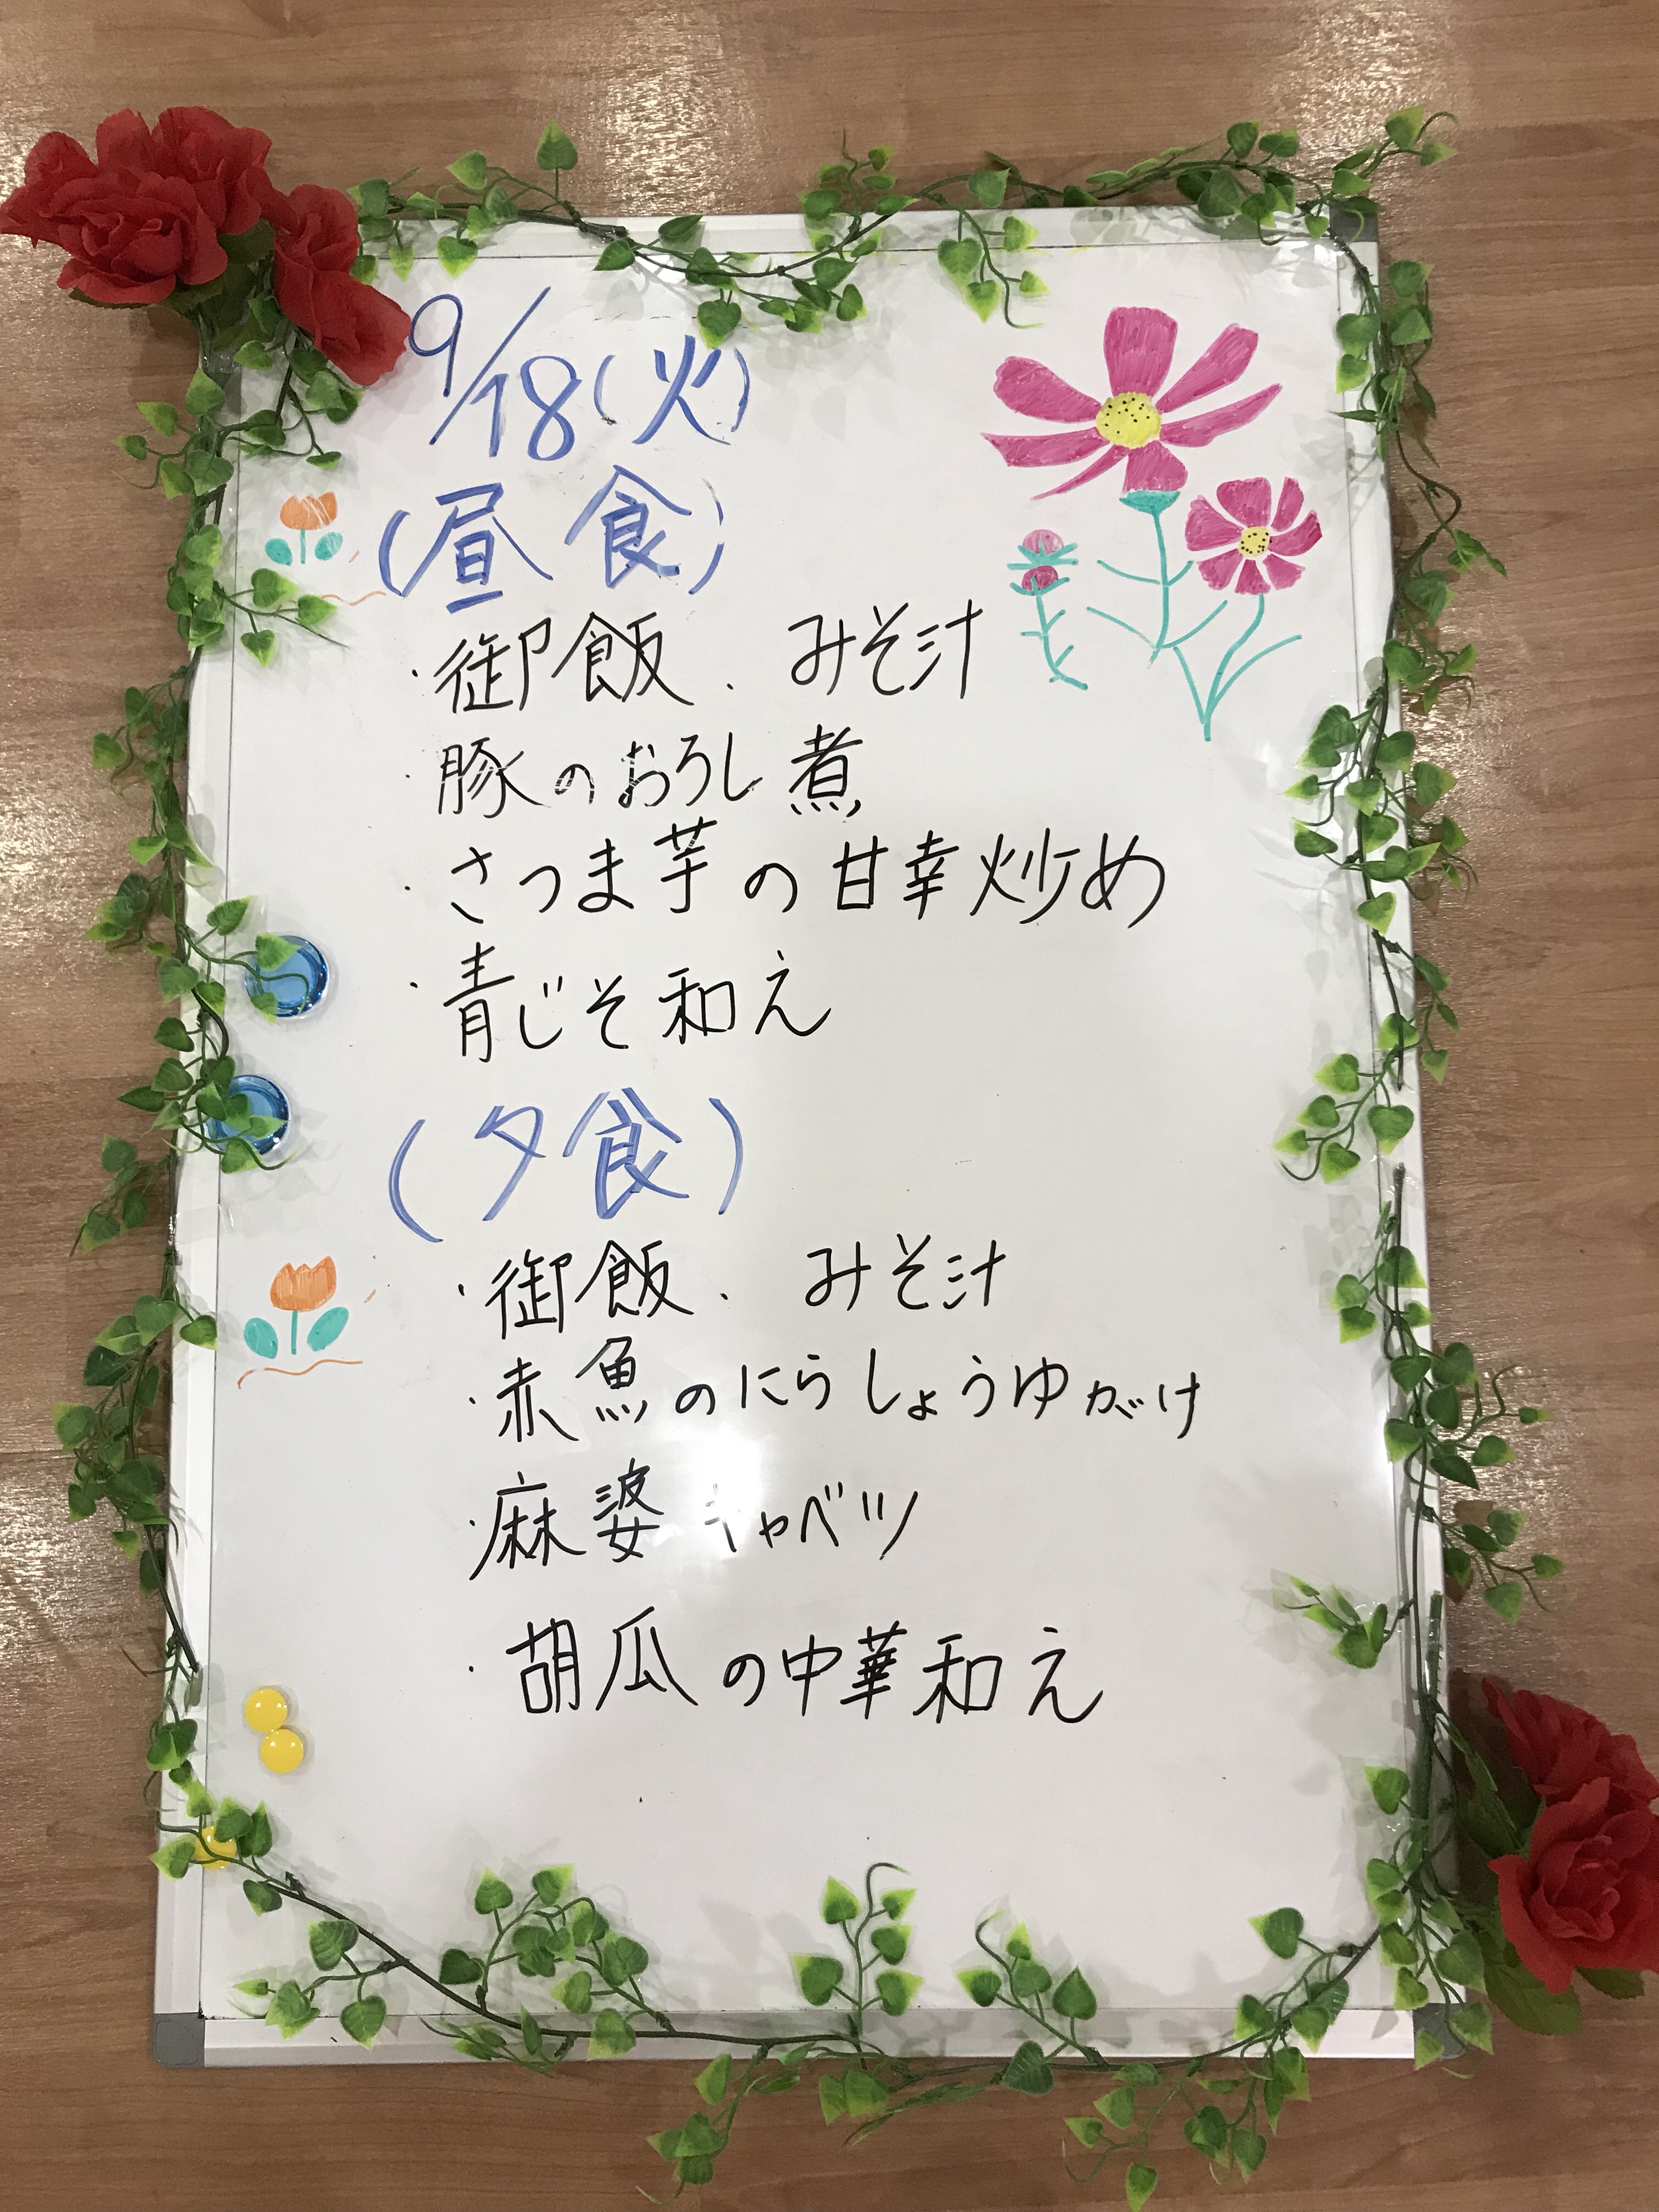 9/18(火)
(昼食)
・御飯 ・ みそ汁
・豚のおろし煮
・さつま芋の甘幸炒め
・青じそ和え
(夕食)
・御飯 ・ みそ汁
・赤魚のにらしょうゆがけ
・麻婆キャベツ
・胡瓜の中華和え